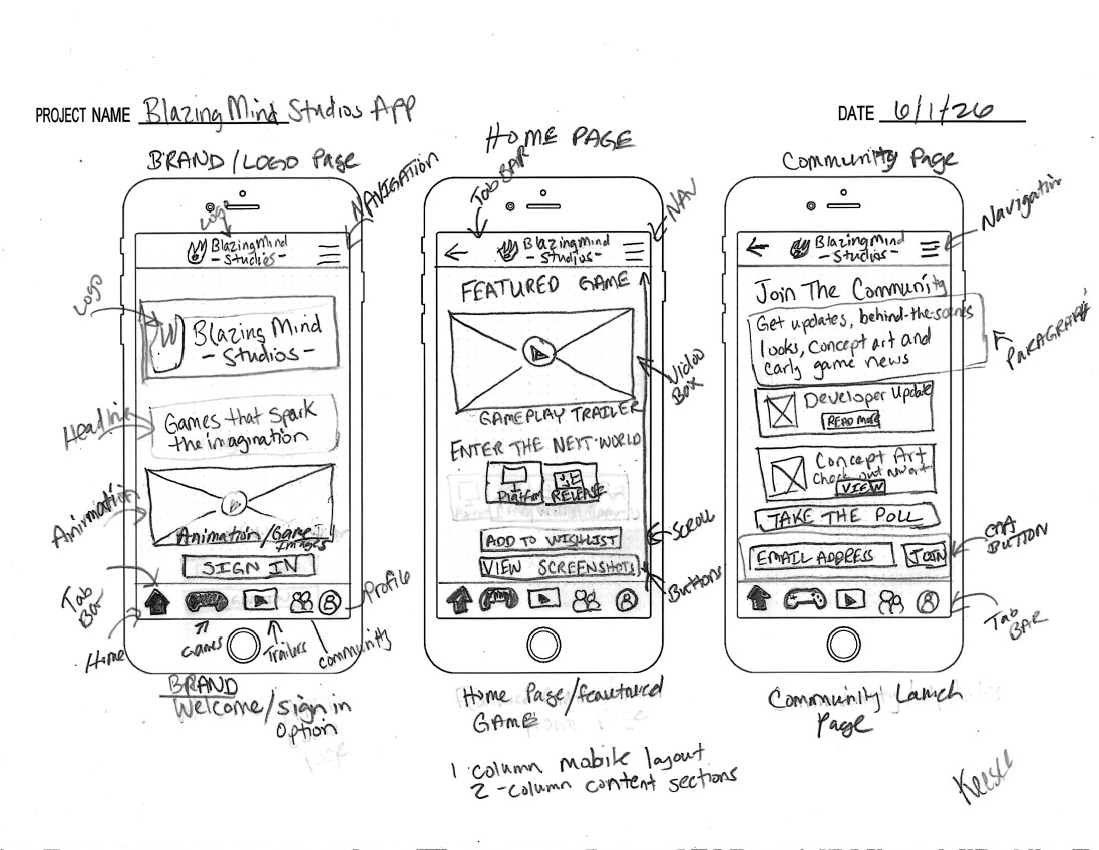 PROJECT NAME Blazing Mind Studios App
DATE 6/1/26
BRAND/LOGO Page
HOME PAGE
Community Page
Logo
NAVIGATION
Blazing Mind
-Studios-
Logo
Blazing Mind
-Studios-
Headline
Games that Spark
the imagination
Animation
Animation/Game
Images
SIGN IN
Tab
Bar
Home
Games
Trailers
Community
Profile
BRAND
Welcome/sign in
Option
Tab BAR
NAV
Blazing Mind
-Studios-
FEATURED GAME
Video
Box
GAMEPLAY TRAILER
ENTER THE NEXT WORLD
Platform
RELEASE
SCROLL
ADD TO WISHLIST
VIEW SCREENSHOTS
Buttons
Home Page/feautured
GAME
1 column mobile layout
2-column content sections
Navigatin
Blazing Mind
-Studios-
Join The Community
Get updates, behind-the-scenes
looks, concept art and
early game news
PARAGRAPH
Developer Update
READ MORE
Concept Art
Check out new art
VIEW
TAKE THE POLL
EMAIL ADDRESS
JOIN
CTA
BUTTON
Tab
BAR
Community Launch
Page